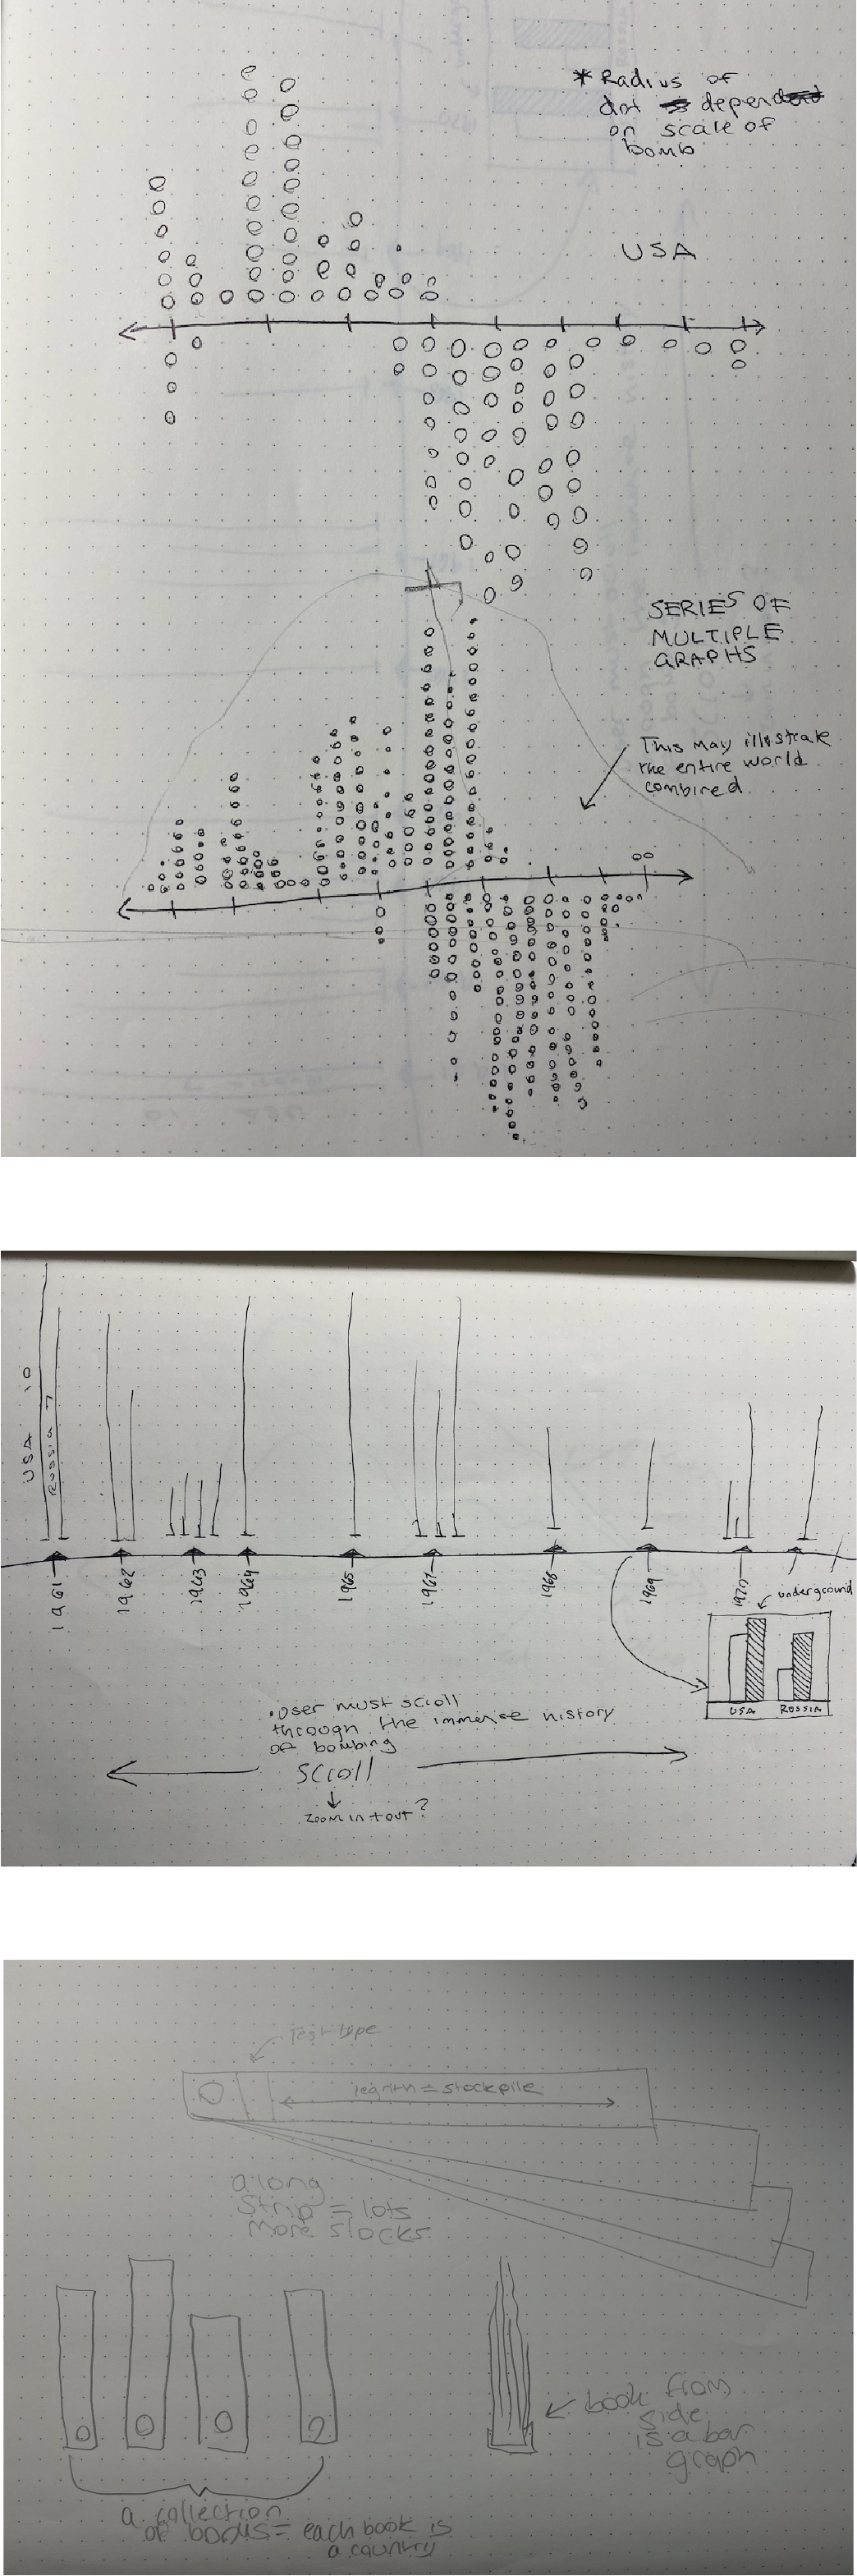 * Radius of
dot depend
on scale of
bomb
USA
SERIES OF
MULTIPLE
GRAPHS
This may illustrate
the entire world
combined
USA 10
RUSSIA 7
1961
1962
1963
1964
1965
1967
1968
1969
1970
underground
USA RUSSIA
• User must scroll
through the immense history
of bombing
SCROLL
Zoom in + out?
Test type
length = stockpile
a long
strip = lots
more stocks
book from
side
is a bar
graph
a collection
of books = each book is
a country